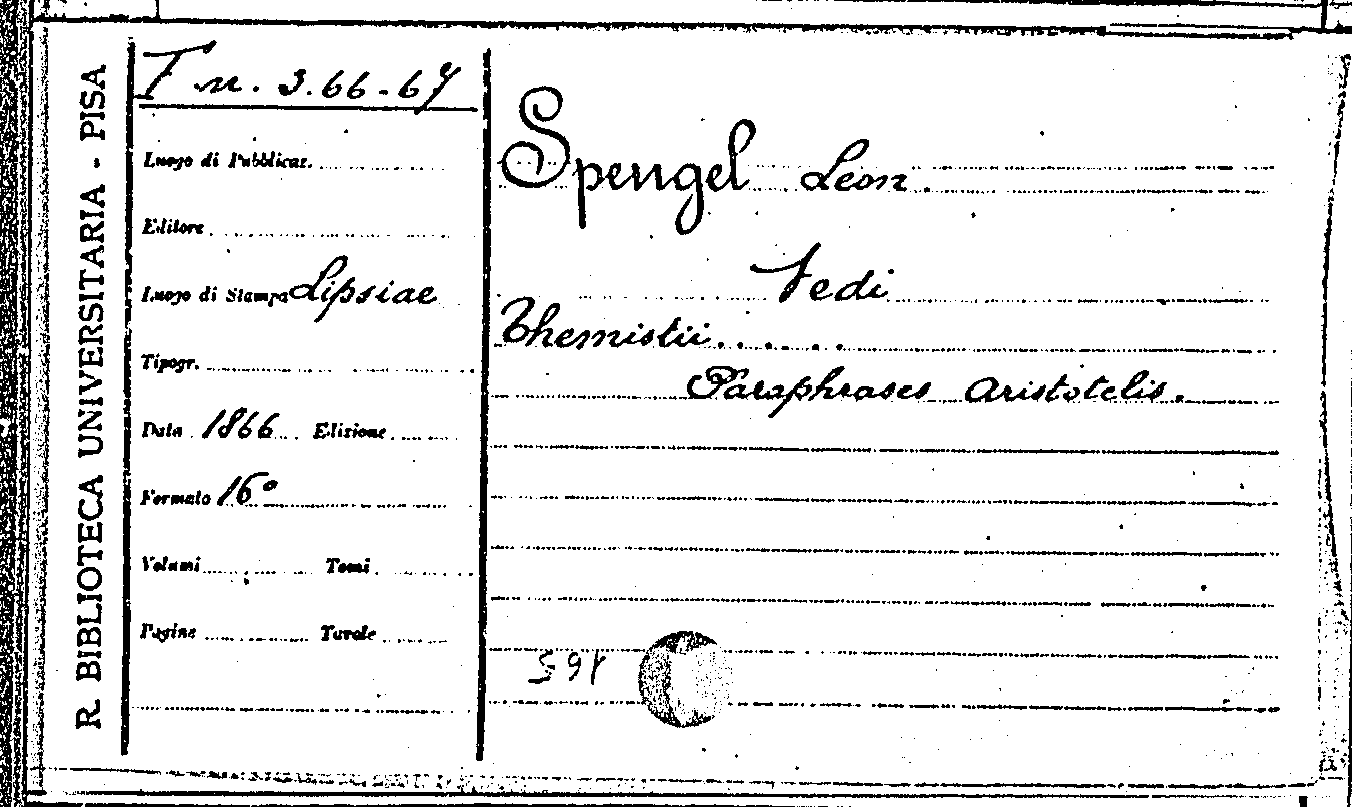 R. BIBLIOTECA UNIVERSITARIA - PISA
T n. 3.66-67
Luogo di Pubblicaz.
Editore
Luogo di Stampa Lipsiae
Tipogr.
Data 1866 Edizione
Formato 16°
Volumi Tomi
Pagine Tavole
Spengel Leon.
Vedi
Themistii......
Paraphrases Aristotelis.